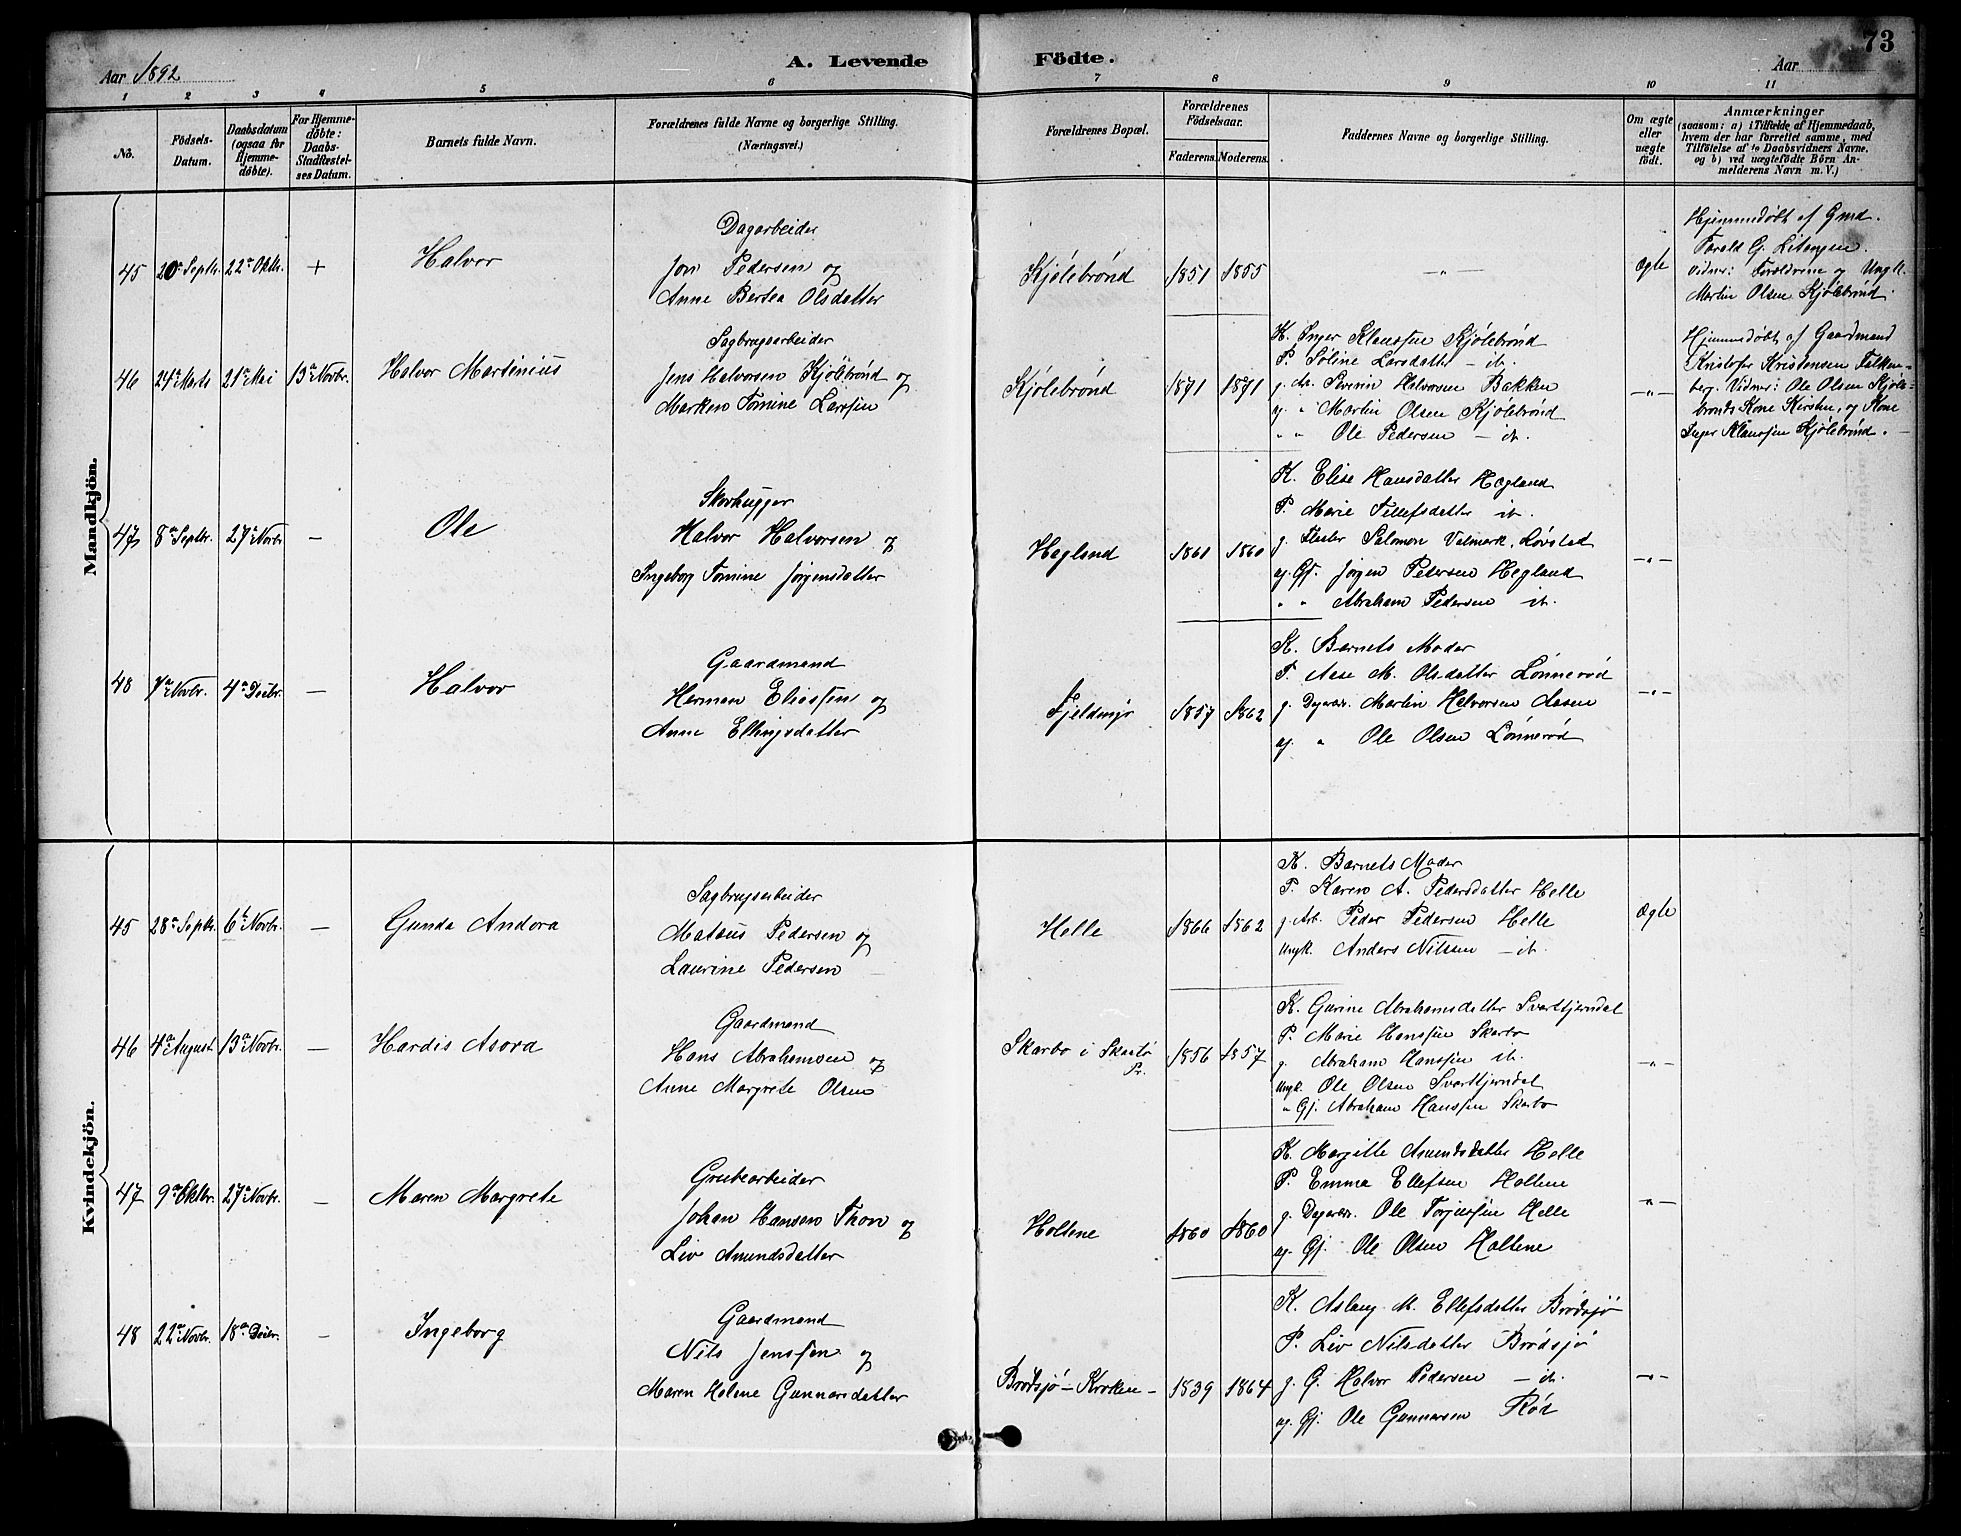 Aar 1892
A. Levende
Födte.
Aar
73
1 2 3 4 5 6 7 8 9 10 11
No.
Födsels-
Datum.
Daabsdatum
(ogsaa for
Hjemme-
døbte).
For Hjemme-
døbte:
Daabs-
Stadfæstel-
ses Datum.
Barnets fulde Navn.
Forældrenes fulde Navne og borgerlige Stilling.
(Næringsvei.)
Forældrenes Bopæl.
Forældrenes
Födselsaar.
Faderens. Moderens.
Faddernes Navne og borgerlige Stilling.
Om ægte
eller
uægte
födt.
Anmærkninger
(saasom: a) i Tilfælde af Hjemmedaab,
hvem der har forrettet samme, med
Tilföielse af to Daabsvidners Navne,
og b) ved uægtefödte Börn An-
melderens Navn m. V.)
Mandkjön.
45 20de Septbr. 22de Oktbr. +
Halvor
Dagarbeider
Jon Pedersen og
Anne Bertea Olsdatter
Kjölebrönd
1851 1855
— " —
Ægte
Hjemmedöbt af Gmd.
Tarald G. Litangen.
Vidner: Forældrene og Ungk.
Martin Olsen Kjölebrönd.
46 24de Marts 21de Mai 13de Novbr.
Halvor Martinius
Sagbrugsarbeider
Jens Halvorsen Kjölebrönd og
Marken Tomine Larssen
Kjölebrönd
1871 1871
K. Inger Klaussen Kjölebrönd
P. Söline Larsdatter — it.
g. Arb. Severin Halvorsen Bakken
ug. " Martin Olsen Kjölebrönd
" " Ole Pedersen — it.
— " —
Hjemmedöbt af Gaardmand
Kristofer Kristensen Falken-
berg. Vidner: Ole Olsen Kjöle-
brønds Kone Kirsten, og Kone
Inger Klaussen Kjölebrönd. —
47 8de Septbr. 27de Novbr. —
Ole
Skovhugger
Halvor Halvorsen og
Ingeborg Tomine Jörgensdatter
Hegland
1861 1860
K. Elise Hansdatter Hegland
P. Marie Tellefsdatter it.
g. Salomon Valmark, Lövstad
ug. Gf. Jörgen Pedersen Hegland
" " Abraham Pedersen it.
— " —
48 7de Novbr. 4de Decbr. —
Halvor
Gaardmand
Herman Eliassen og
Anne Ellingsdatter
1857 1862
K. Barnets Moder
P. Aase M. Olsdatter Lönneröd
g. Dagarb. Martin Halvorsen Aasen
ug. " Ole Olsen Lönneröd
— " —
Kvindekjön.
45 28de Septbr. 6te Novbr. —
Gunda Andora
Sagbrugsarbeider
Mataus Pedersen og
Laurine Pedersen
Helle
1866 1862
K. Barnets Moder
P. Karen A. Pedersdatter Helle
g. Arb. Peder Pedersen Helle
Ungk. Anders Nilsen — it.
Ægte
46 4de August 13de Novbr. —
Hardis Asora
Gaardmand
Hans Abrahamsen og
Anne Margrete Olsen
Skarbo i Skaatö
Pr.
1856 1857
K. Gurine Abrahamsdatter Svarttjerndal
P. Marie Hanssen Skarbo
g. Abraham Hanssen it.
Ungk. Ole Olsen Svarttjerndal
" Gj. Abraham Hanssen Skarbo
— " —
47 9de Oktbr. 27de Novbr. —
Maren Margrete
Grubearbeider
Johan Hansen Thon og
Liv Amundsdatter
Holtene
1860 1860
K. Margitte Amundsdatter Helle
P. Emma Ellefsen Holtene
g. Dagarb. Ole Torjussen Helle
ug. Gj. Ole Olsen Holtene
— " —
48 22de Novbr. 18de Decbr. —
Ingeborg
Gaardmand
Nils Jenssen og
Maren Helene Gunnarsdatter
Brödsjö – Kroken –
1839 1864
K. Aslaug M. Ellefsdatter Brödsjö
P. Liv Nilsdatter Brödsjö
g. G. Halvor Pedersen — it.
ug. Gj. Ole Gunnarsen Röd
— " —